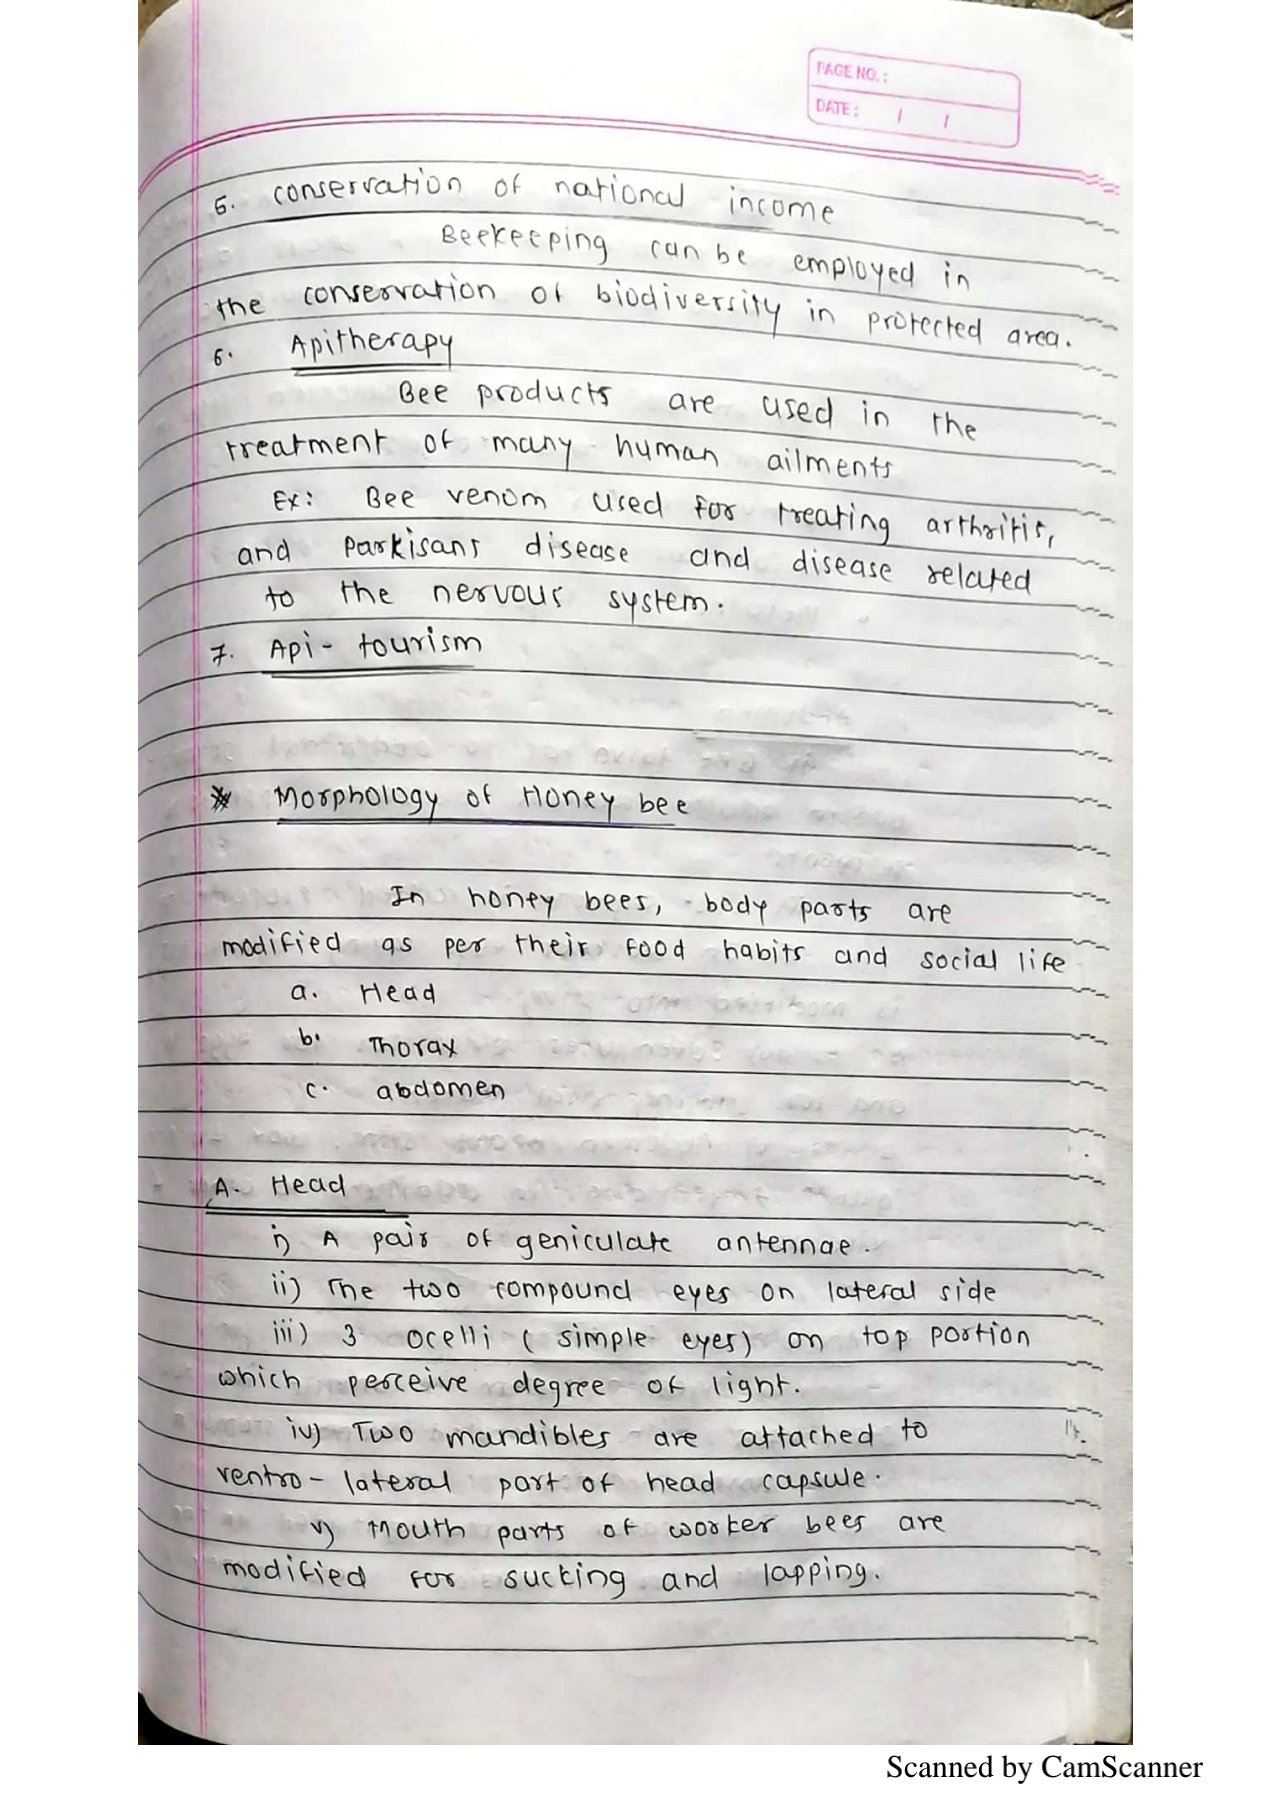 PAGE NO.:
DATE: / /
5. conservation of national income
Beekeeping can be employed in
the conservation of biodiversity in protected area.
6. Apitherapy
Bee products are used in the
treatment of many human ailments
Ex: Bee venom used for treating arthritis,
and Parkisans disease and disease related
to the nervous system.
7. Api - tourism
* Morphology of Honey bee
In honey bees, body parts are
modified as per their food habits and social life
a. Head
b. Thorax
c. abdomen
A. Head
i) A pair of geniculate antennae.
ii) The two compound eyes on lateral side
iii) 3 ocelli ( simple eyes) on top portion
which perceive degree of light.
iv) Two mandibles are attached to
ventro - lateral part of head capsule.
v) Mouth parts of worker bees are
modified for sucking and lapping.
Scanned by CamScanner